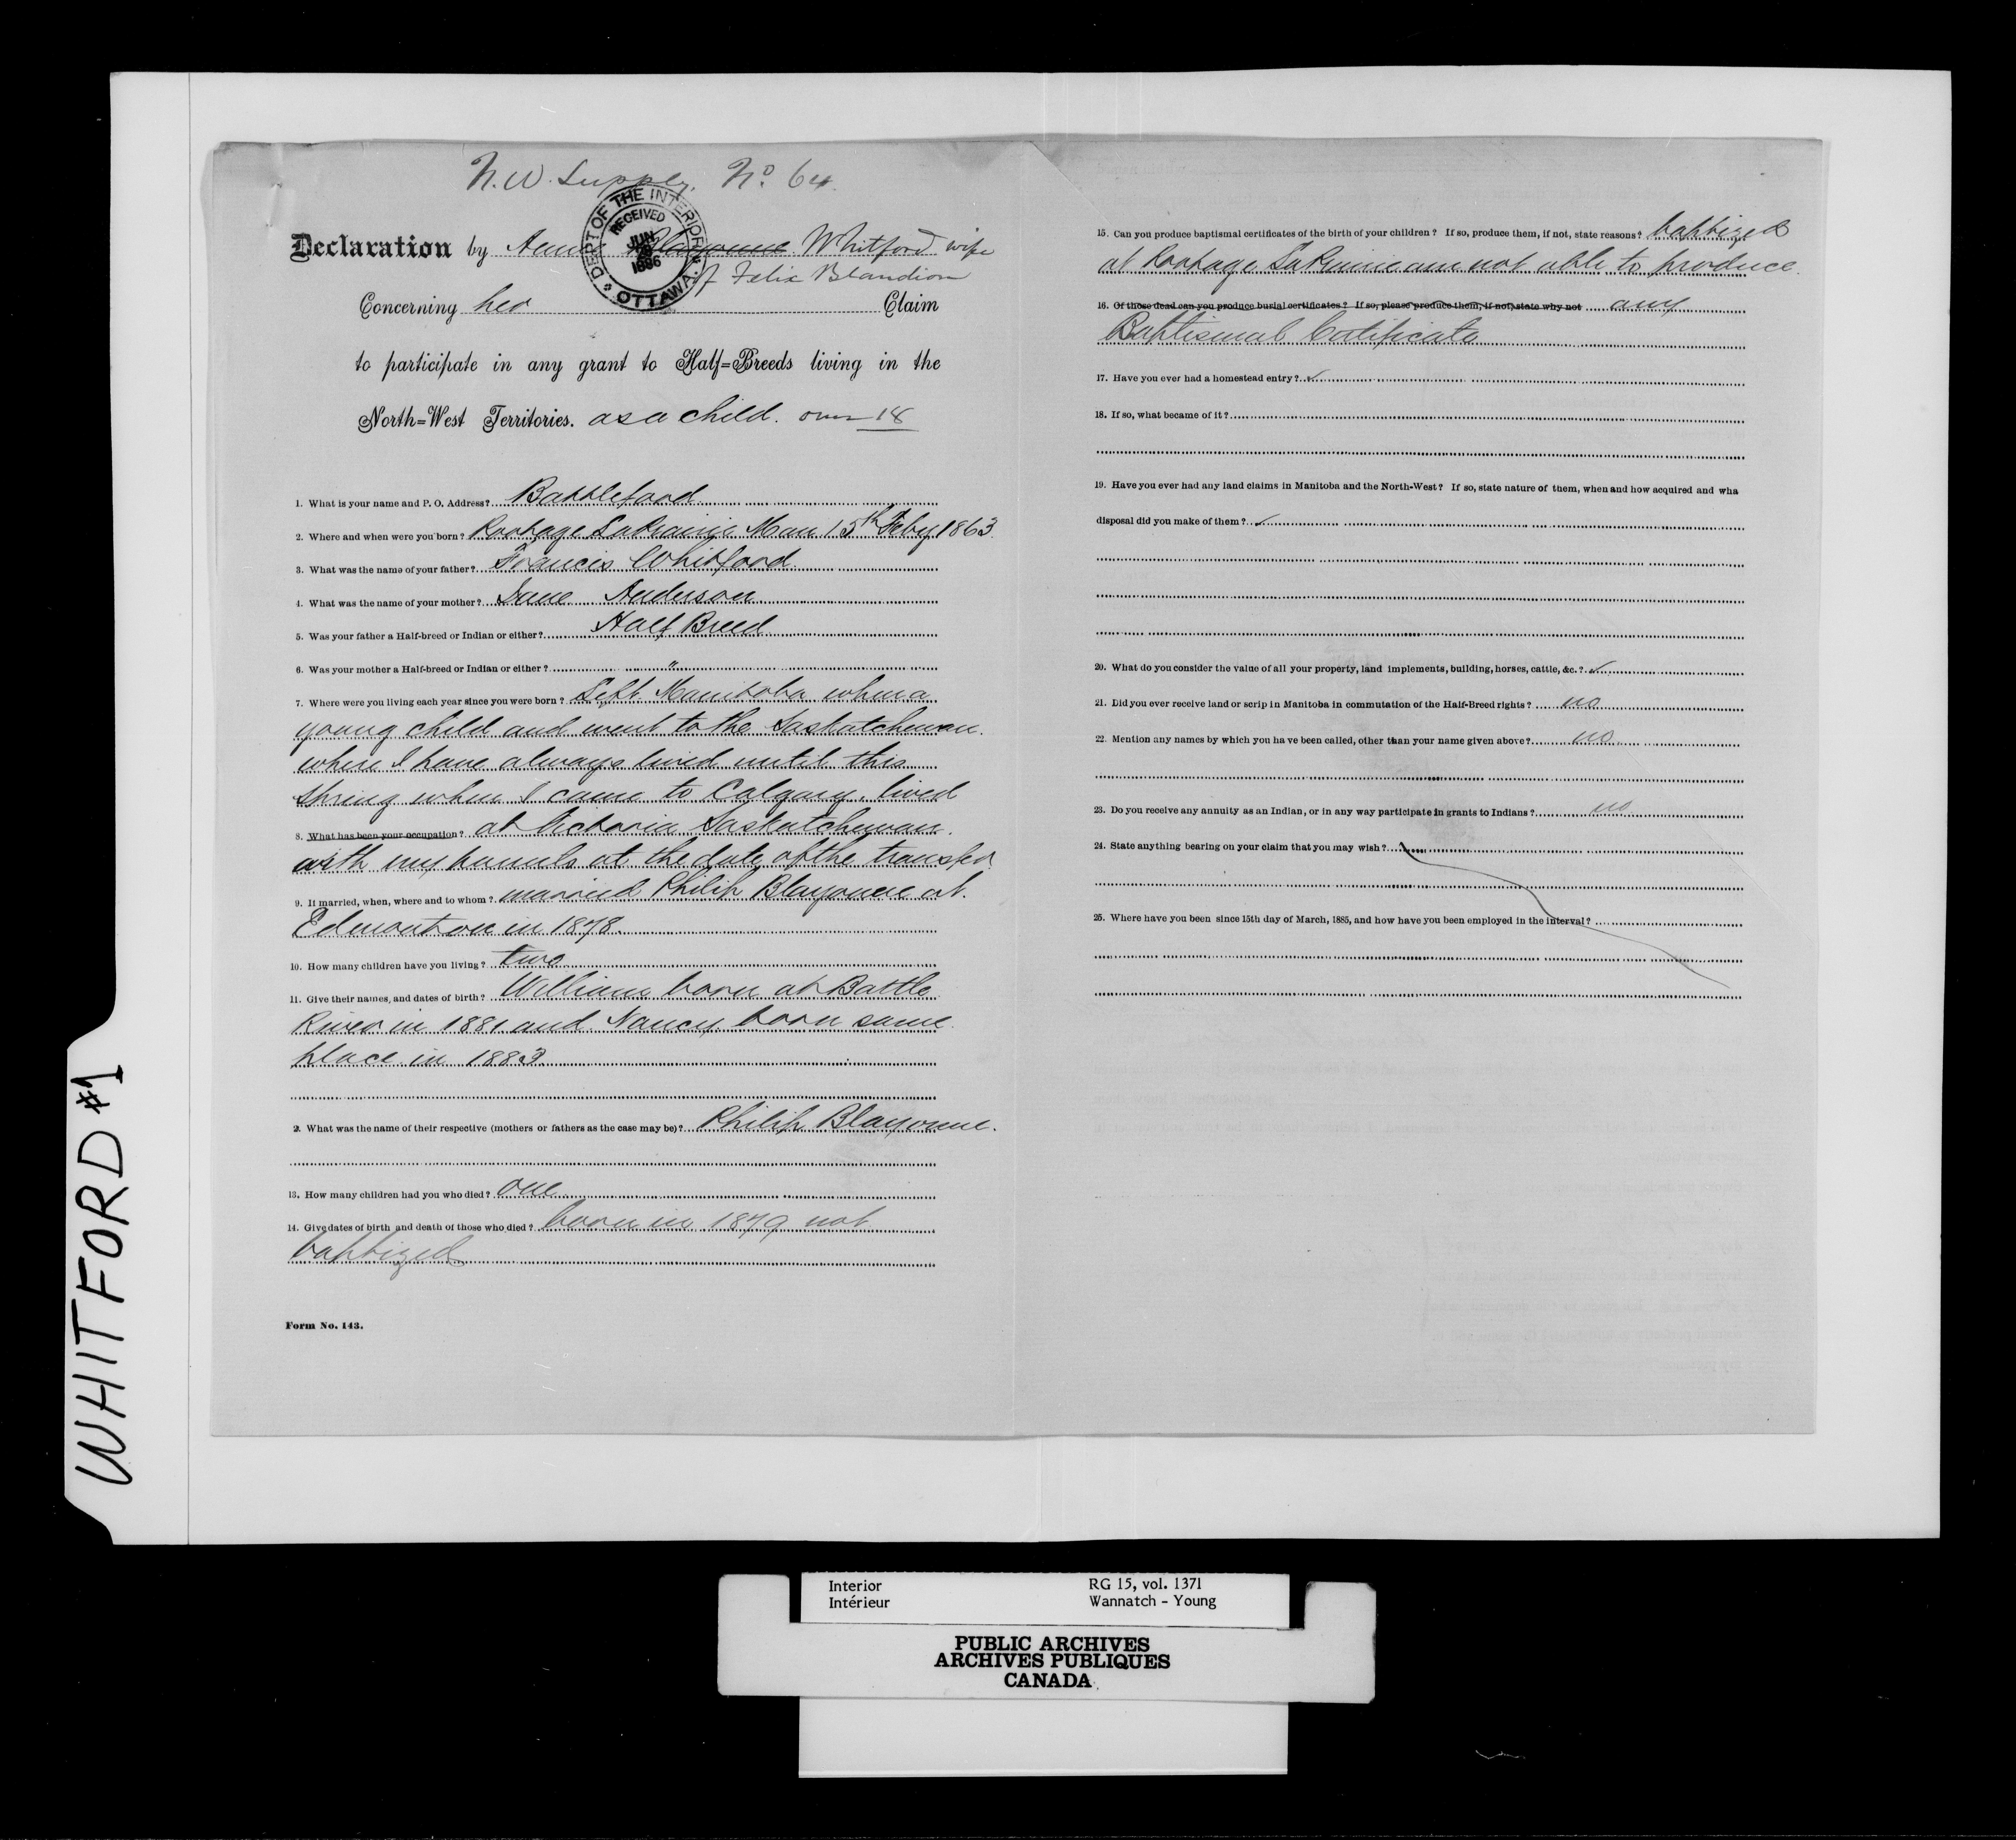 N.W. Supply. No. 64.
DEPT OF THE INTERIOR
RECEIVED
JUN
28
1886
OTTAWA
Declaration by Blayonne Whitford wife
of Felix Blandion
Concerning her Claim
to participate in any grant to Half=Breeds living in the
North=West Territories. as a child. over 18
1. What is your name and P. O. Address? Battleford
2. Where and when were you born? Portage LaPrairie Man 15th Feby 1863
3. What was the name of your father? Francis Whitford
4. What was the name of your mother? Jane Anderson
5. Was your father a Half-breed or Indian or either? Half Breed
6. Was your mother a Half-breed or Indian or either? "
7. Where were you living each year since you were born? Left Manitoba when a
young child and went to the Saskatchewan.
where I have always lived until this
Spring when I came to Calgary. lived
8. What has been your occupation? at Victoria Saskatchewan.
with my parents at the date of the transfer
9. If married, when, where and to whom? married Philip Blayonne at
Edmonton in 1878.
10. How many children have you living? two
11. Give their names, and dates of birth? William born at Battle
River in 1881 and Nancy born same
place in 1883
2. What was the name of their respective (mothers or fathers as the case may be)? Philip Blayonne.
13. How many children had you who died? one
14. Give dates of birth and death of those who died? born in 1879 not
baptized
Form No. 143.
15. Can you produce baptismal certificates of the birth of your children? If so, produce them, if not, state reasons? baptized
at Portage LaPrairie am not able to produce
16. Of those dead can you produce burial certificates? If so, please produce them, if not, state why not any
Baptismal Certificate
17. Have you ever had a homestead entry? ✓
18. If so, what became of it?
19. Have you ever had any land claims in Manitoba and the North-West? If so, state nature of them, when and how acquired and wha
disposal did you make of them? ✓
20. What do you consider the value of all your property, land implements, building, horses, cattle, &c.? ✓
21. Did you ever receive land or scrip in Manitoba in commutation of the Half-Breed rights? no
22. Mention any names by which you have been called, other than your name given above? no
23. Do you receive any annuity as an Indian, or in any way participate in grants to Indians? no
24. State anything bearing on your claim that you may wish?
25. Where have you been since 15th day of March, 1885, and how have you been employed in the interval?
WHITFORD #1
Interior RG 15, vol. 1371
Intérieur Wannatch - Young
PUBLIC ARCHIVES
ARCHIVES PUBLIQUES
CANADA